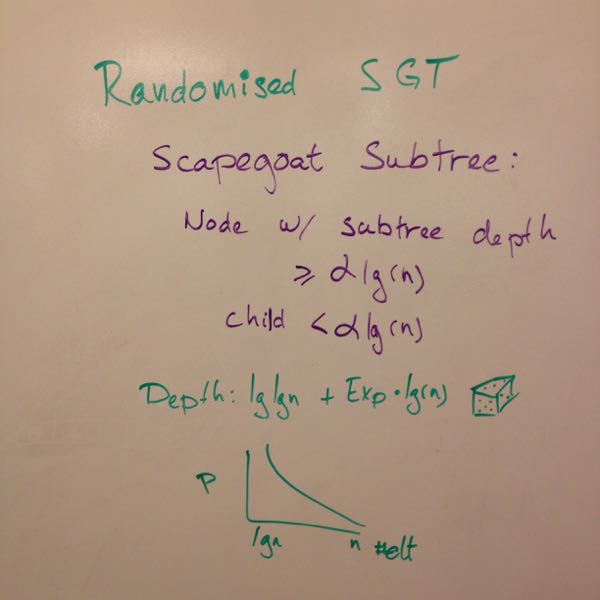 Randomised SGT
Scapegoat Subtree:
Node w/ subtree depth
≥ αlg(n)
child < αlg(n)
Depth: lglgn + Exp·lg(n)
P
lgn n #elt